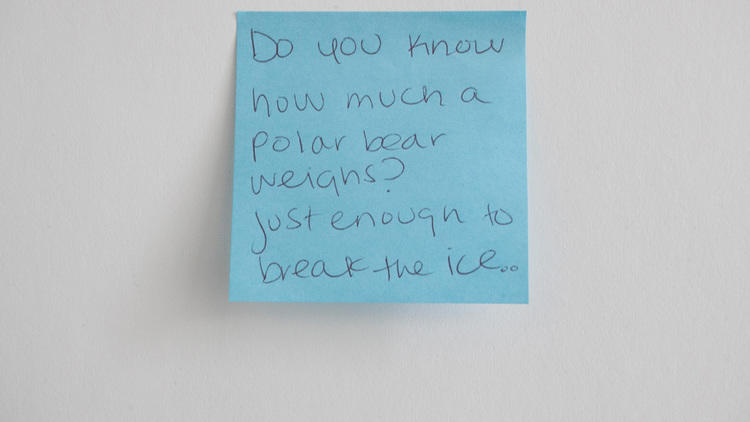 Do you know
how much a
polar bear
weighs?
Just enough to
break the ice..